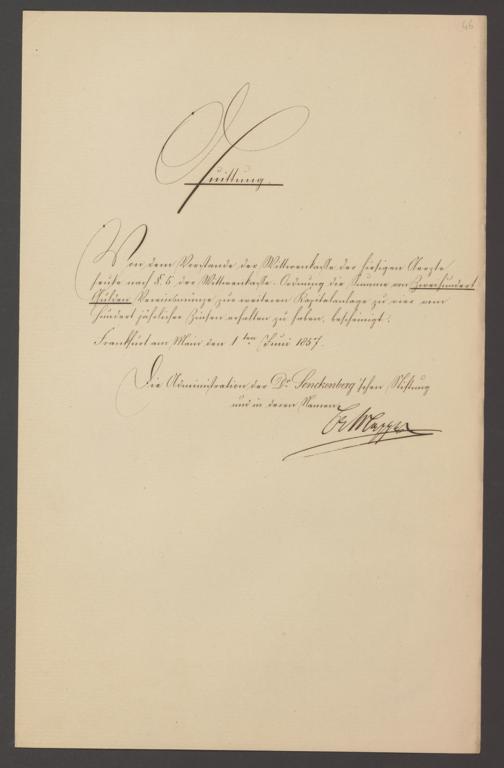 46
Quittung.
Von dem Vorstande der Wittwenkasse der hiesigen Aerzte
heute nach §. 5. der Wittwenkasse-Ordnung die Summe von Zweihundert
Gulden Vereinsmünze zur weiteren Kapitalanlage zu vier vom
Hundert jährlicher Zinsen erhalten zu haben, bescheinigt:
Frankfurt am Main den 1ten Juni 1857.
Die Administration der Dr. Senckenberg'schen Stiftung
und in deren Namen